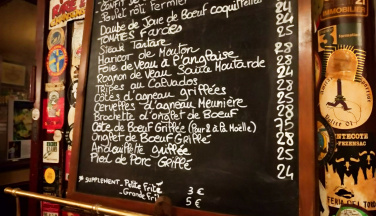 Poulet rôti fermier 24
Daube de Joue de Boeuf coquillettes 24
TOMATES FARCIES 25
Steak Tartare
Haricot de Mouton 28
Foie de veau à l'anglaise 28
Rognon de veau Sauce Moutarde 24
Tripes au Calvados 28
Côtes d'agneau grillées
Cervelles d'agneau Meunière
Brochette d'onglet de Boeuf 28
Côte de Boeuf Grillée (Pour 2 à la Moëlle) 75
Onglet de Boeuf Grillé 28
Andouillette Grillée 25
Pied de Porc Grillé 24
SUPPLEMENT - Petite Frite 3 €
- Grande Frite 5 €
IMMOBILIER
PENTECOTE
FERIA DEL TORO